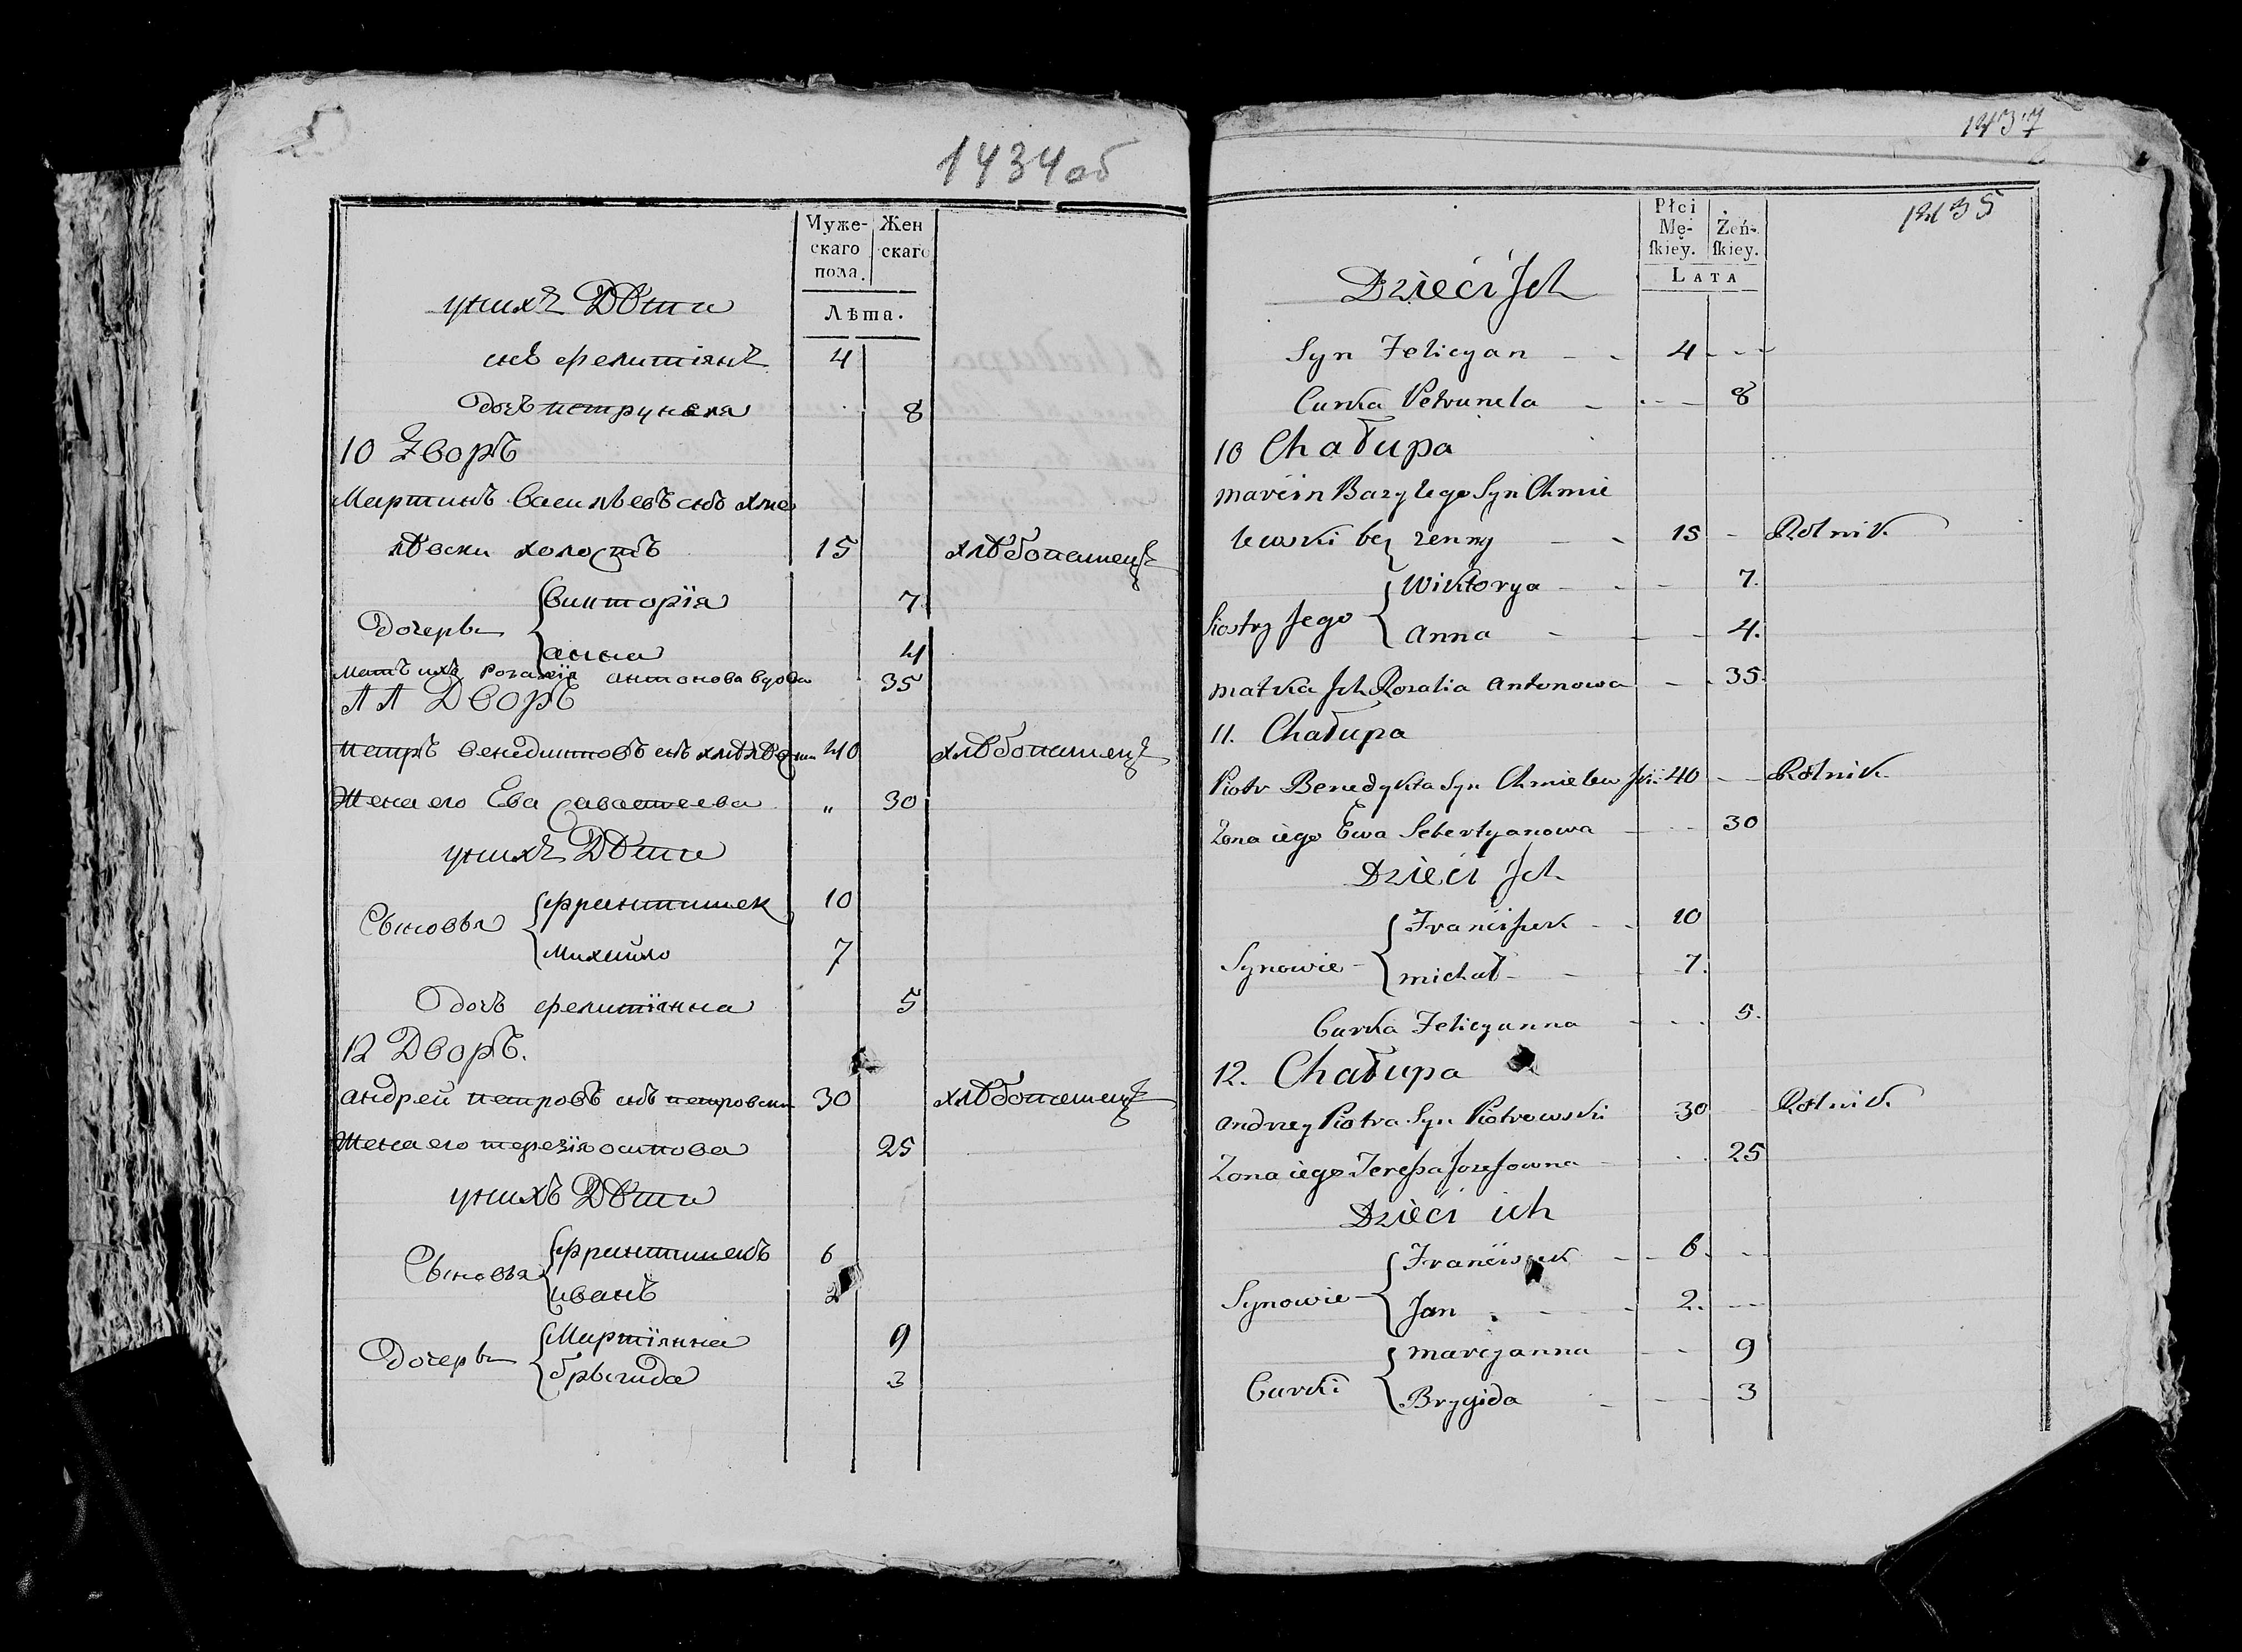 1434об
Муже-
скаго
пола.
Жен
скаго
Лѣта.
у нихъ Дѣти
снъ фелитіянъ 4
дочъ петрунеля 8
10 Дворъ
Мартинъ Васильевъ снъ хме
лѣвски холостъ 15 хлѣбопашецъ
Дочерьи { викторїя 7
анна 4
Матъ ихъ Розалїя антонова вдова 35
11 Дворъ
петръ бенедиктовъ снъ хмѣлѣвски 40 хлѣбопашецъ
Жена его Ева Савостеева " 30
у нихъ Дѣти
Сыновья { францишек 10
Михайло 7
дочъ фелитїянна 5
12 Дворъ.
андрей петровъ снъ петровски 30 хлѣбопашецъ
Жена его терезїя осипова 25
у нихъ Дѣти
Сыновья { францишекъ 6
иванъ 2
Дочерьи { Мартїянна 9
брыгида 3
1437
1435
Płci
Mę-
ſkiey.
Żeń-
ſkiey.
LATA
Dzieci Jch
Syn Felicyan 4
Curka Petrunela 8
10 Chałupa
Marcin Bazylego Syn Chmie
lewski bez zenny 15 Rolnik
Siostry Jego { Wiktorya 7.
Anna 4.
Matka Jch Rozalia Antonowa 35.
11. Chałupa
Piotr Benedykta Syn Chmielewſki 40 Rolnik
Zona iego Ewa Sebestyanowa 30
Dzieci Jch
Synowie { Franciſzek 10
Michał 7.
Curka Felicyanna 5.
12. Chałupa
Andrzey Piotra Syn Piotrowski 30 Rolnik
Zona iego Tereſsa Jozefowna 25
Dzieci ich
Synowie { Franciszek 6.
Jan 2.
Curki { Marcyanna 9
Brygida 3